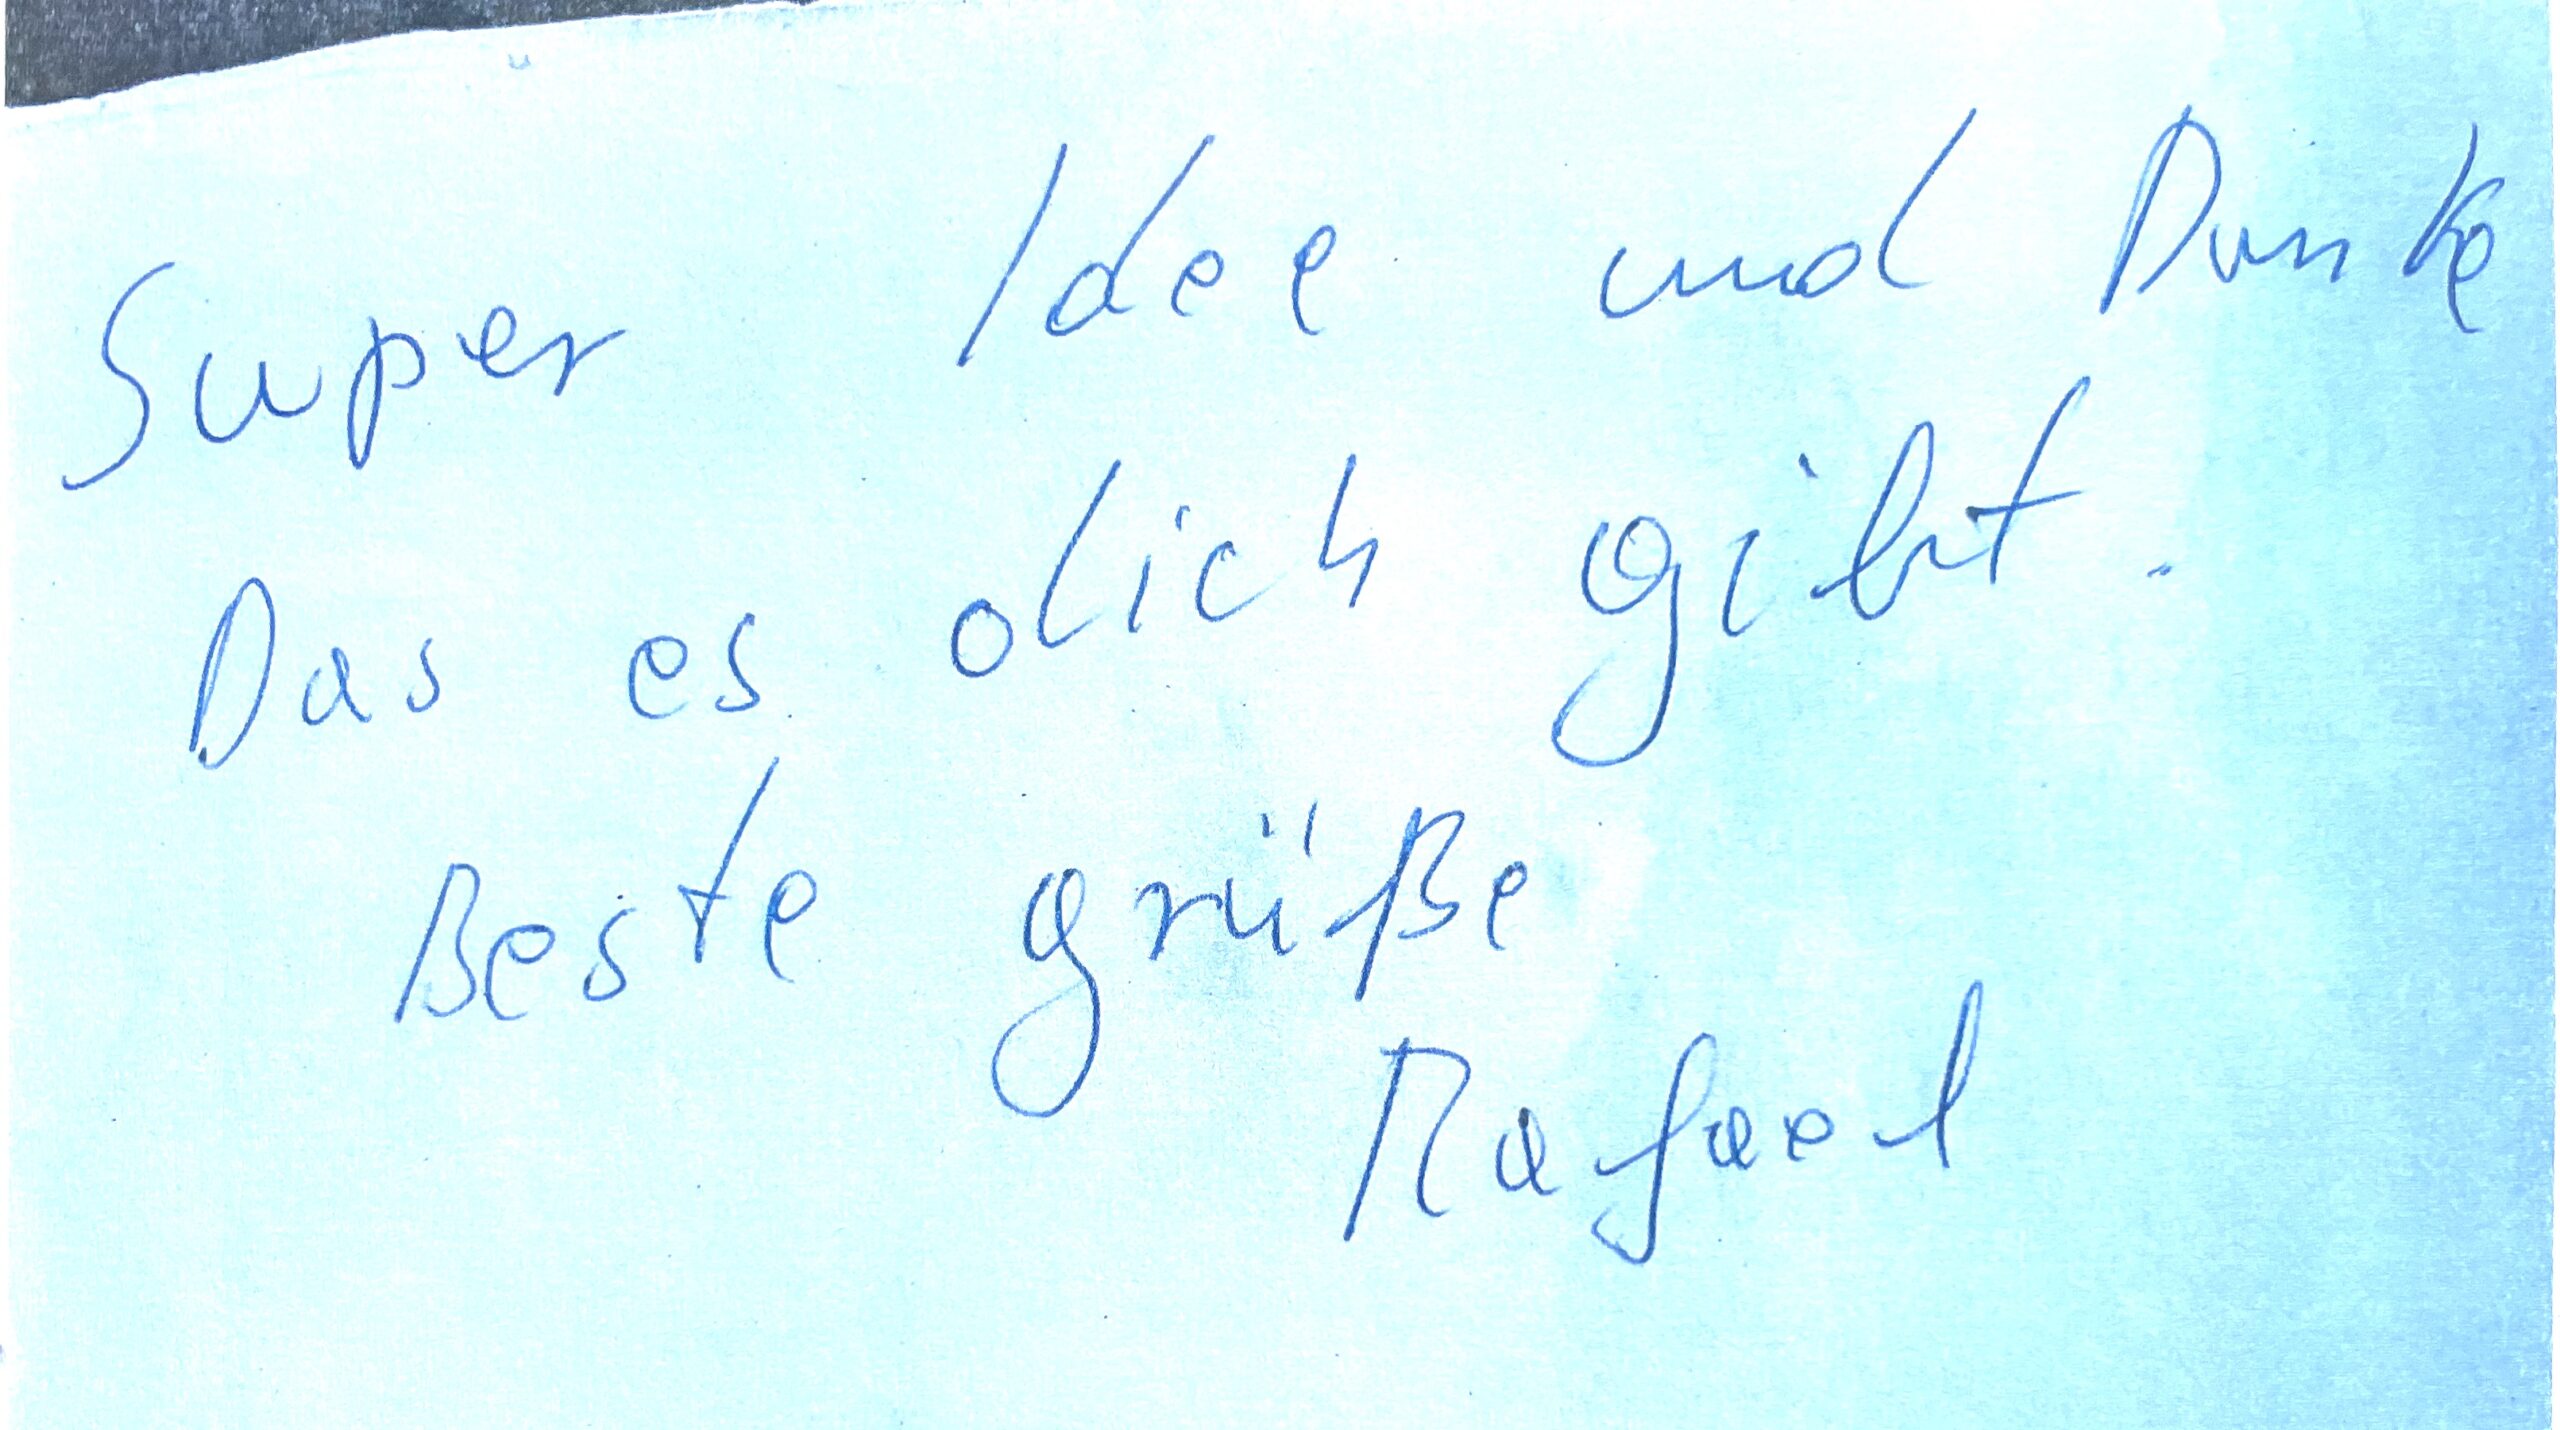 Super Idee und Danke
Das es dich gibt.
Beste grüße
Rafael